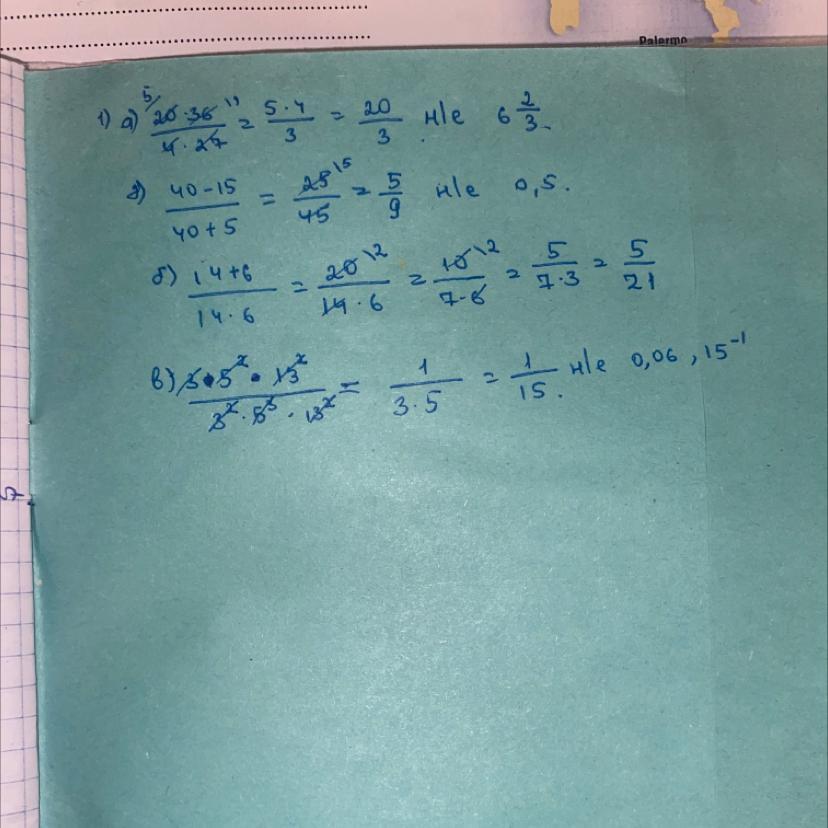 Palermo
1) а) 5/ 20·36 / 4·27 = 5·4 / 3 = 20/3 н/е 6 2/3.
г) 40-15 / 40+5 = 25\5 / 45 = 5/9 н/е 0,5.
б) 14+6 / 14·6 = 20\2 / 14·6 = 10\2 / 7·6 = 5 / 7·3 = 5/21
в) 3·5²·13² / 3²·5³·13² = 1 / 3·5 = 1/15. н/е 0,06, 15⁻¹